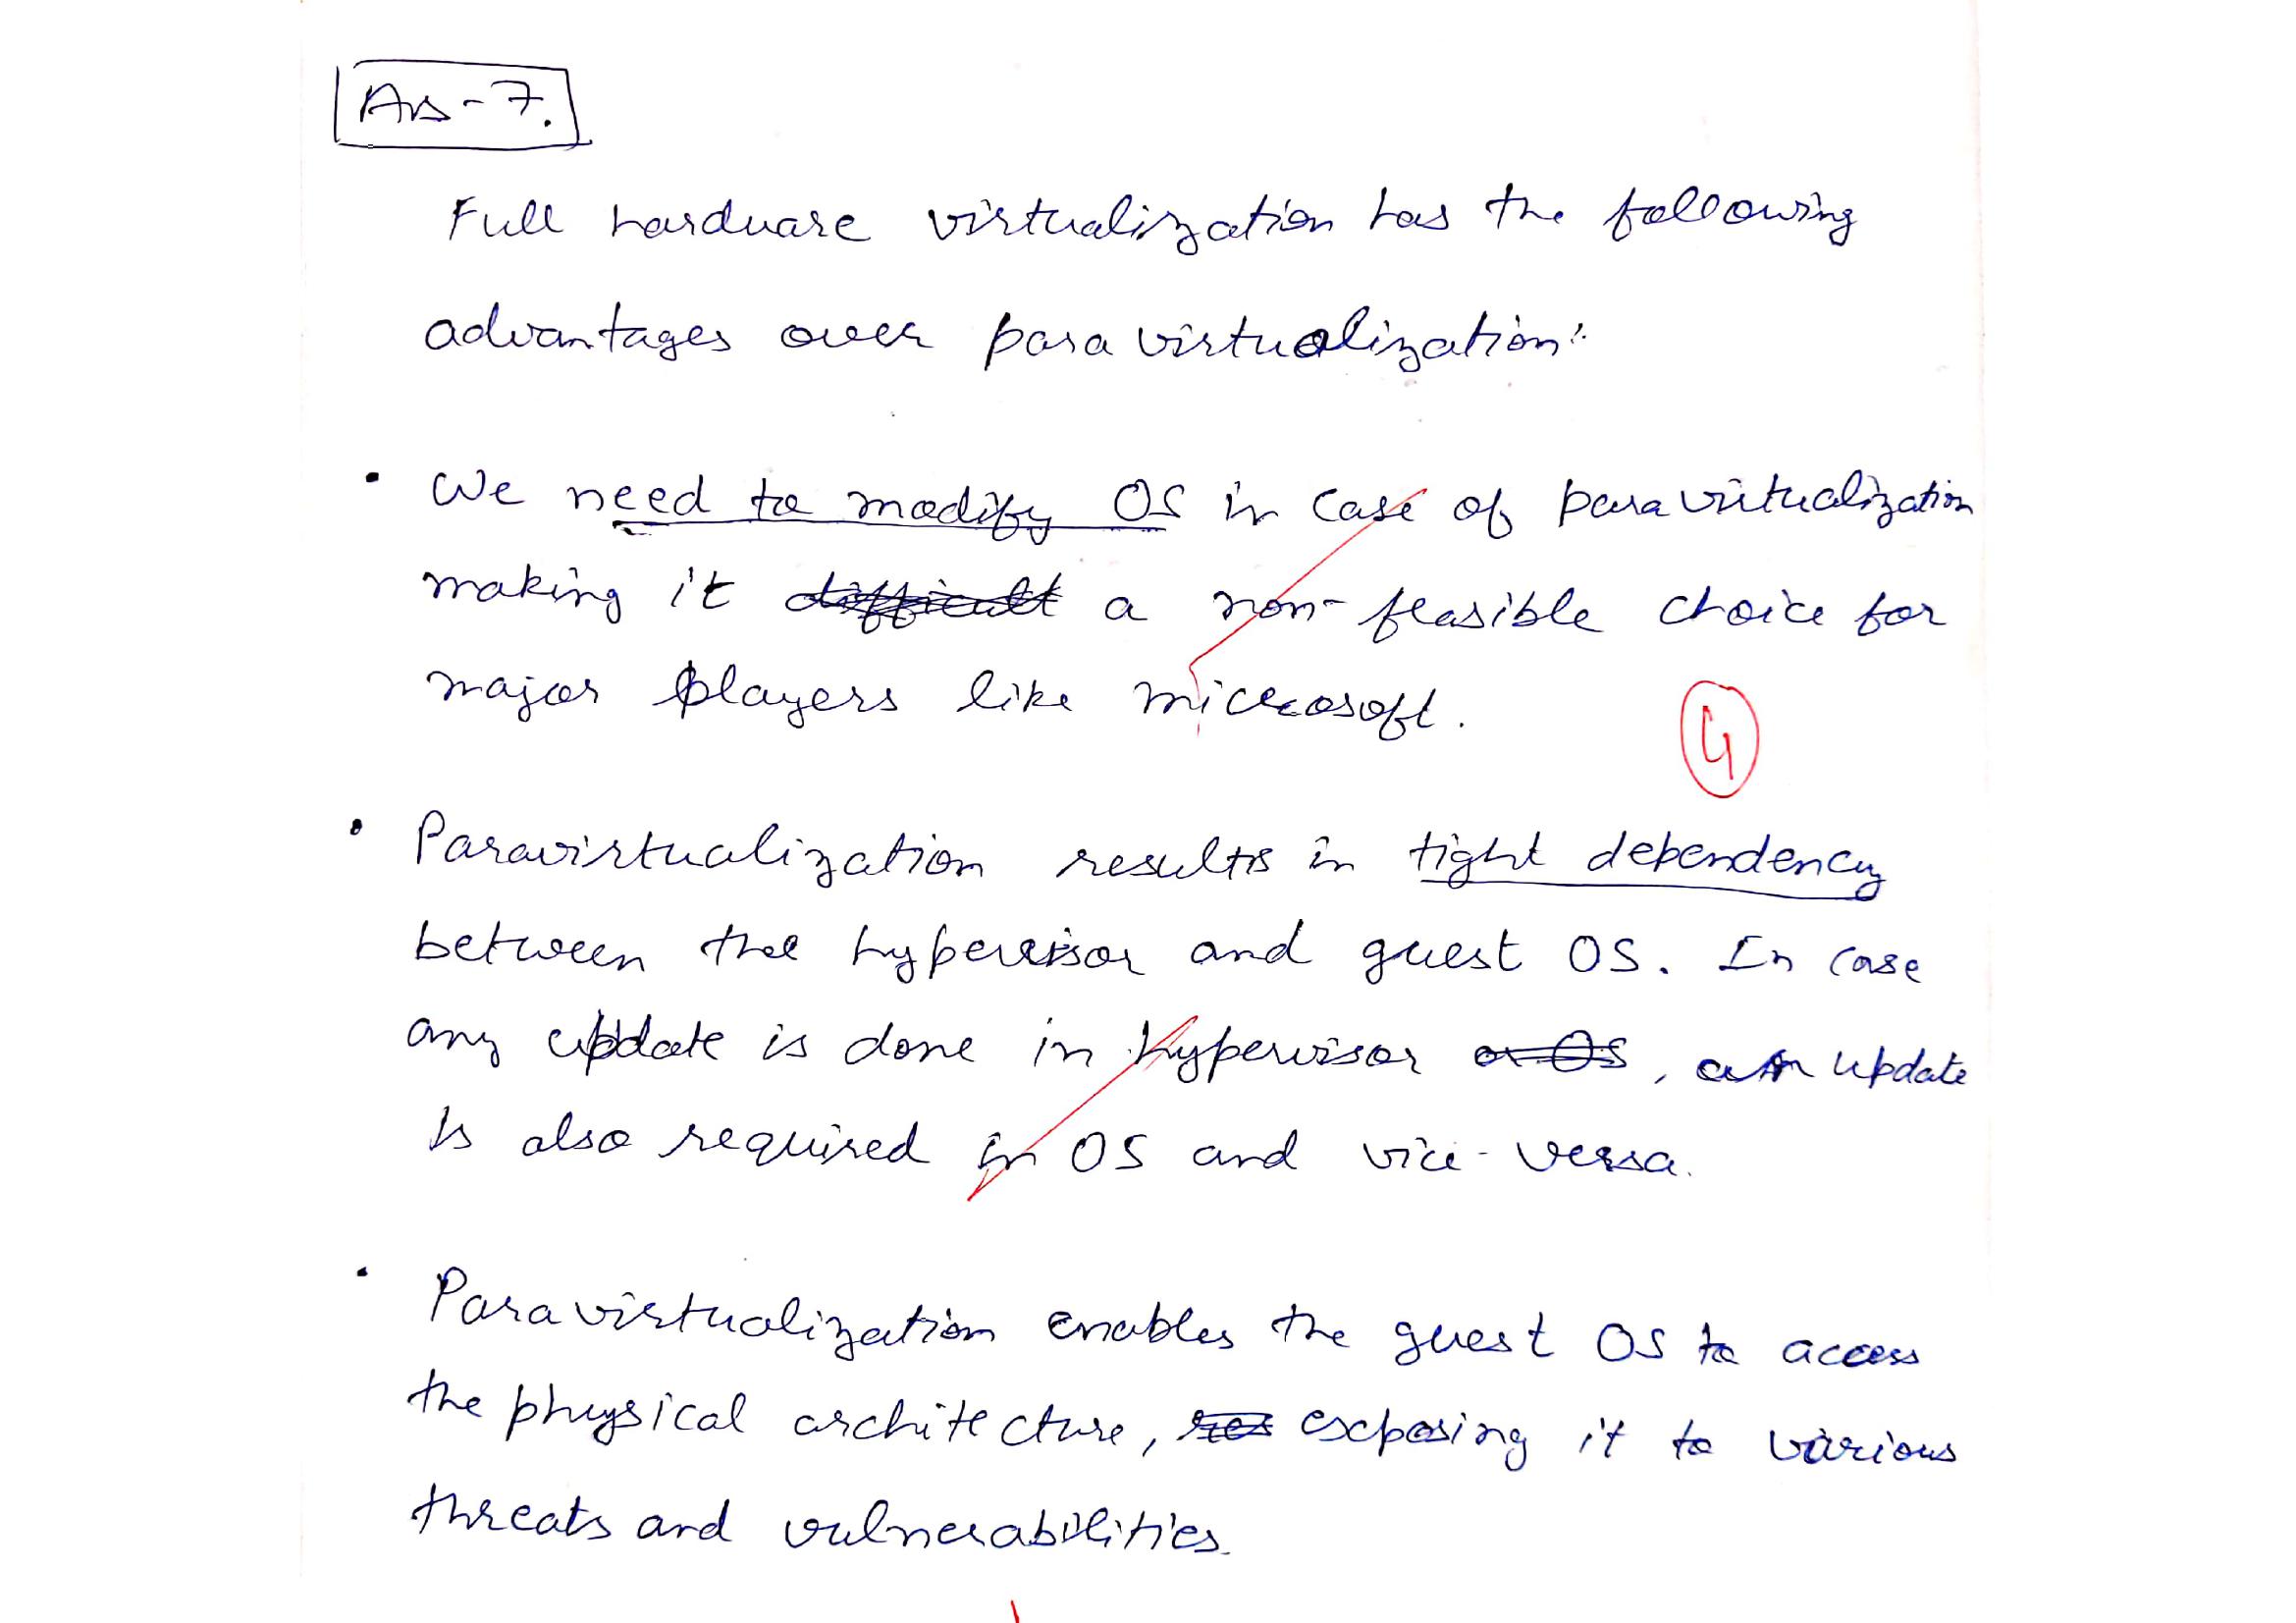 Ans-7.
Full hardware virtualization has the following
advantages over para virtualization:
• We need to modify OS in case of paravirtualization
making it difficult a non-feasible choice for
major players like microsoft.
4
• Paravirtualization results in tight dependency
between the hypervisor and guest OS. In case
any update is done in hypervisor or OS, an update
is also required in OS and vice-versa.
• Paravirtualization enables the guest OS to access
the physical architecture, exposing it to various
threats and vulnerabilities.